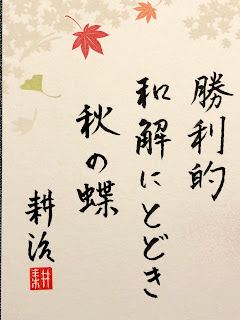 勝利的
和解にとどき
秋の蝶
耕治
耕